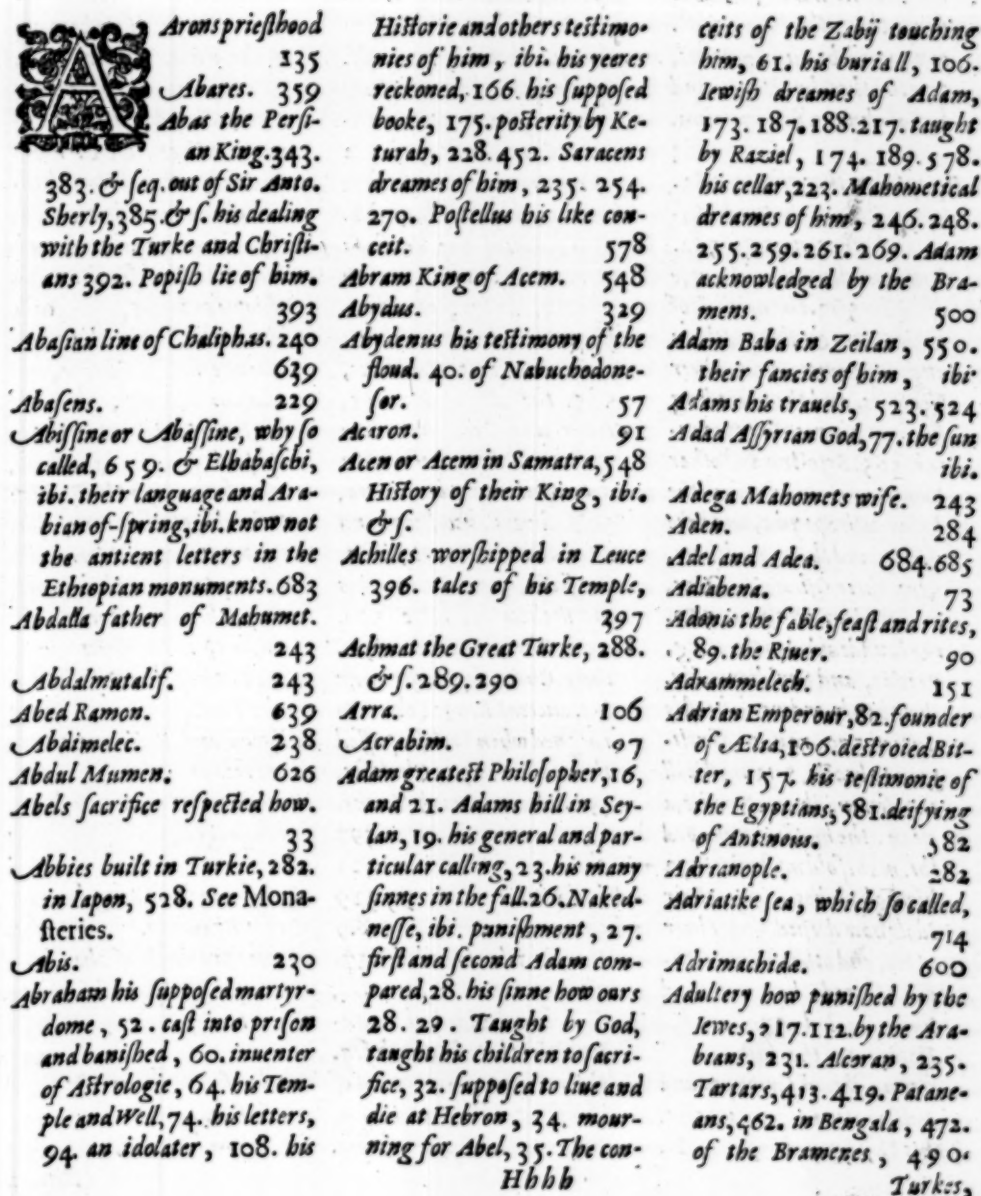 AArons priesthood
135
Abares. 359
Abas the Persi-
an King. 343.
383. & seq. out of Sir Anto.
Sherly, 385. & s. his dealing
with the Turke and Christi-
ans 392. Popish lie of him.
393
Abasian line of Chaliphas. 240
639
Abasens. 229
Abissine or Abassine, why so
called, 659. & Elhabaschi,
ibi. their language and Ara-
bian of-spring, ibi. know not
the antient letters in the
Ethiopian monuments. 683
Abdalla father of Mahumet.
243
Abdalmutalif. 243
Abed Ramon. 639
Abdimelec. 238
Abdul Mumen. 626
Abels sacrifice respected how.
33
Abbies built in Turkie, 282.
in Iapon, 528. See Mona-
steries.
Abis. 230
Abraham his supposed martyr-
dome, 52. cast into prison
and banished, 60. inuenter
of Astrologie, 64. his Tem-
ple and Well, 74. his letters,
94. an idolater, 108. his
Historie and others testimo-
nies of him, ibi. his yeeres
reckoned, 166. his supposed
booke, 175. posterity by Ke-
turah, 228. 452. Saracens
dreames of him, 235. 254.
270. Postellus his like con-
ceit. 578
Abram King of Acem. 548
Abydus. 329
Abydenus his testimony of the
floud. 40. of Nabuchodone-
sor. 57
Acaron. 91
Acen or Acem in Samatra, 548
History of their King, ibi.
& s.
Achilles worshipped in Leuce
396. tales of his Temple,
397
Achmat the Great Turke, 288.
& s. 289. 290
Arra. 106
Acrabim. 97
Adam greatest Philosopher, 16,
and 21. Adams hill in Sey-
lan, 19. his general and par-
ticular calling, 23. his many
sinnes in the fall. 26. Naked-
nesse, ibi. punishment, 27.
first and second Adam com-
pared, 28. his sinne how ours
28. 29. Taught by God,
taught his children to sacri-
fice, 32. supposed to liue and
die at Hebron, 34. mour-
ning for Abel, 35. The con-
Hhhh
ceits of the Zabij touching
him, 61. his buriall, 106.
Iewish dreames of Adam,
173. 187. 188. 217. taught
by Raziel, 174. 189. 578.
his cellar, 223. Mahometical
dreames of him, 246. 248.
255. 259. 261. 269. Adam
acknowledged by the Bra-
mens. 500
Adam Baba in Zeilan, 550.
their fancies of him, ibi
Adams his trauels, 523. 524
Adad Assyrian God, 77. the sun
ibi.
Adega Mahomets wife. 243
Aden. 284
Adel and Adea. 684. 685
Adiabena. 73
Adonis the fable, feast and rites,
89. the Riuer. 90
Adrammelech. 151
Adrian Emperour, 82. founder
of Ælia, 106. destroied Bit-
ter, 157. his testimonie of
the Egyptians, 581. deifying
of Antinous. 582
Adrianople. 282
Adriatike sea, which so called,
714
Adrimachidæ. 600
Adultery how punished by the
Iewes, 217. 112. by the Ara-
bians, 231. Alcoran, 235.
Tartars, 413. 419. Patane-
ans, 462. in Bengala, 472.
of the Bramenes, 490.
Turkes,